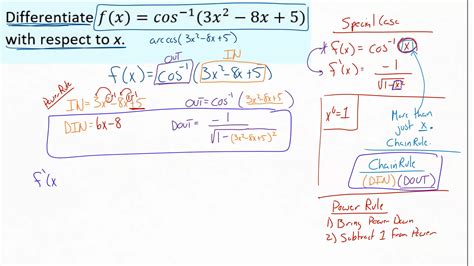 Differentiate f(x) = cos⁻¹(3x² − 8x + 5)
with respect to x.
arccos(3x²-8x+5)
OUT IN
f(x) = cos⁻¹(3x²-8x+5)
Power Rule
IN = 3x²-8x+5
OUT = cos⁻¹(3x²-8x+5)
DIN = 6x-8
DOUT = -1/√(1-(3x²-8x+5)²)
f'(x
Special Case
* f(x) = cos⁻¹(x)
f'(x) = -1/√(1-x²)
x⁰=1
More than
just x.
Chain Rule
Chain Rule
(DIN)(DOUT)
Power Rule
1) Bring Power Down
2) Subtract 1 From Power